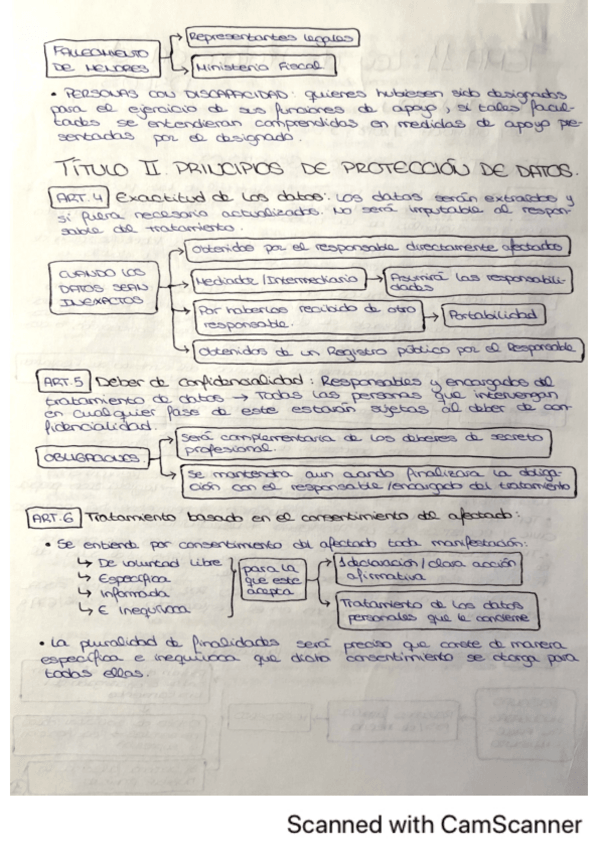 FALLECIMIENTO DE MENORES
Representantes legales
Ministerio Fiscal
• PERSONAS CON DISCAPACIDAD: quienes hubiesen sido designados
para el ejercicio de sus funciones de apoyo, si tales facul-
tades se entendieran comprendidas en medidas de apoyo pre-
sentadas por el designado.
TÍTULO II. PRINCIPIOS DE PROTECCIÓN DE DATOS.
ART.4 Exactitud de los datos: Los datos serán extraidos y
si fuera necesario actualizados. No será imputable al respon-
sable del tratamiento.
CUANDO LOS DATOS SEAN INEXACTOS
Obtenidos por el responsable directamente afectados
Mediador/Intermediario → Asumirá las responsabili-
dades
Por haberlos recibido de otro
responsable. → Portabilidad
Obtenidos de un Registro público por el Responsable
ART.5 Deber de confidensialidad: Responsables y encargados del
tratamiento de datos → Todas las personas que intervengan
en cualquier fase de este estarán sujetas al deber de con-
fidencialidad.
OBLIGACIONES
Será complementaria de los deberes de secreto
profesional.
Se mantendra aun cuando finalizara la obliga-
ción con el responsable/encargado del tratamiento
ART.6 Tratamiento basado en el consentimiento del afectado:
• Se entiende por consentimiento del afectado toda manifestación:
↳ De voluntad libre
↳ Específica
↳ Informada
↳ E inequívoca
para la
que este
acepta
1 declaración/clara acción
afirmativa
Tratamiento de los datos
personales que le concierne
• La pluralidad de finalidades será preciso que conste de manera
específica e inequívoca que dicho consentimiento se otorga para
todas ellas.
Scanned with CamScanner